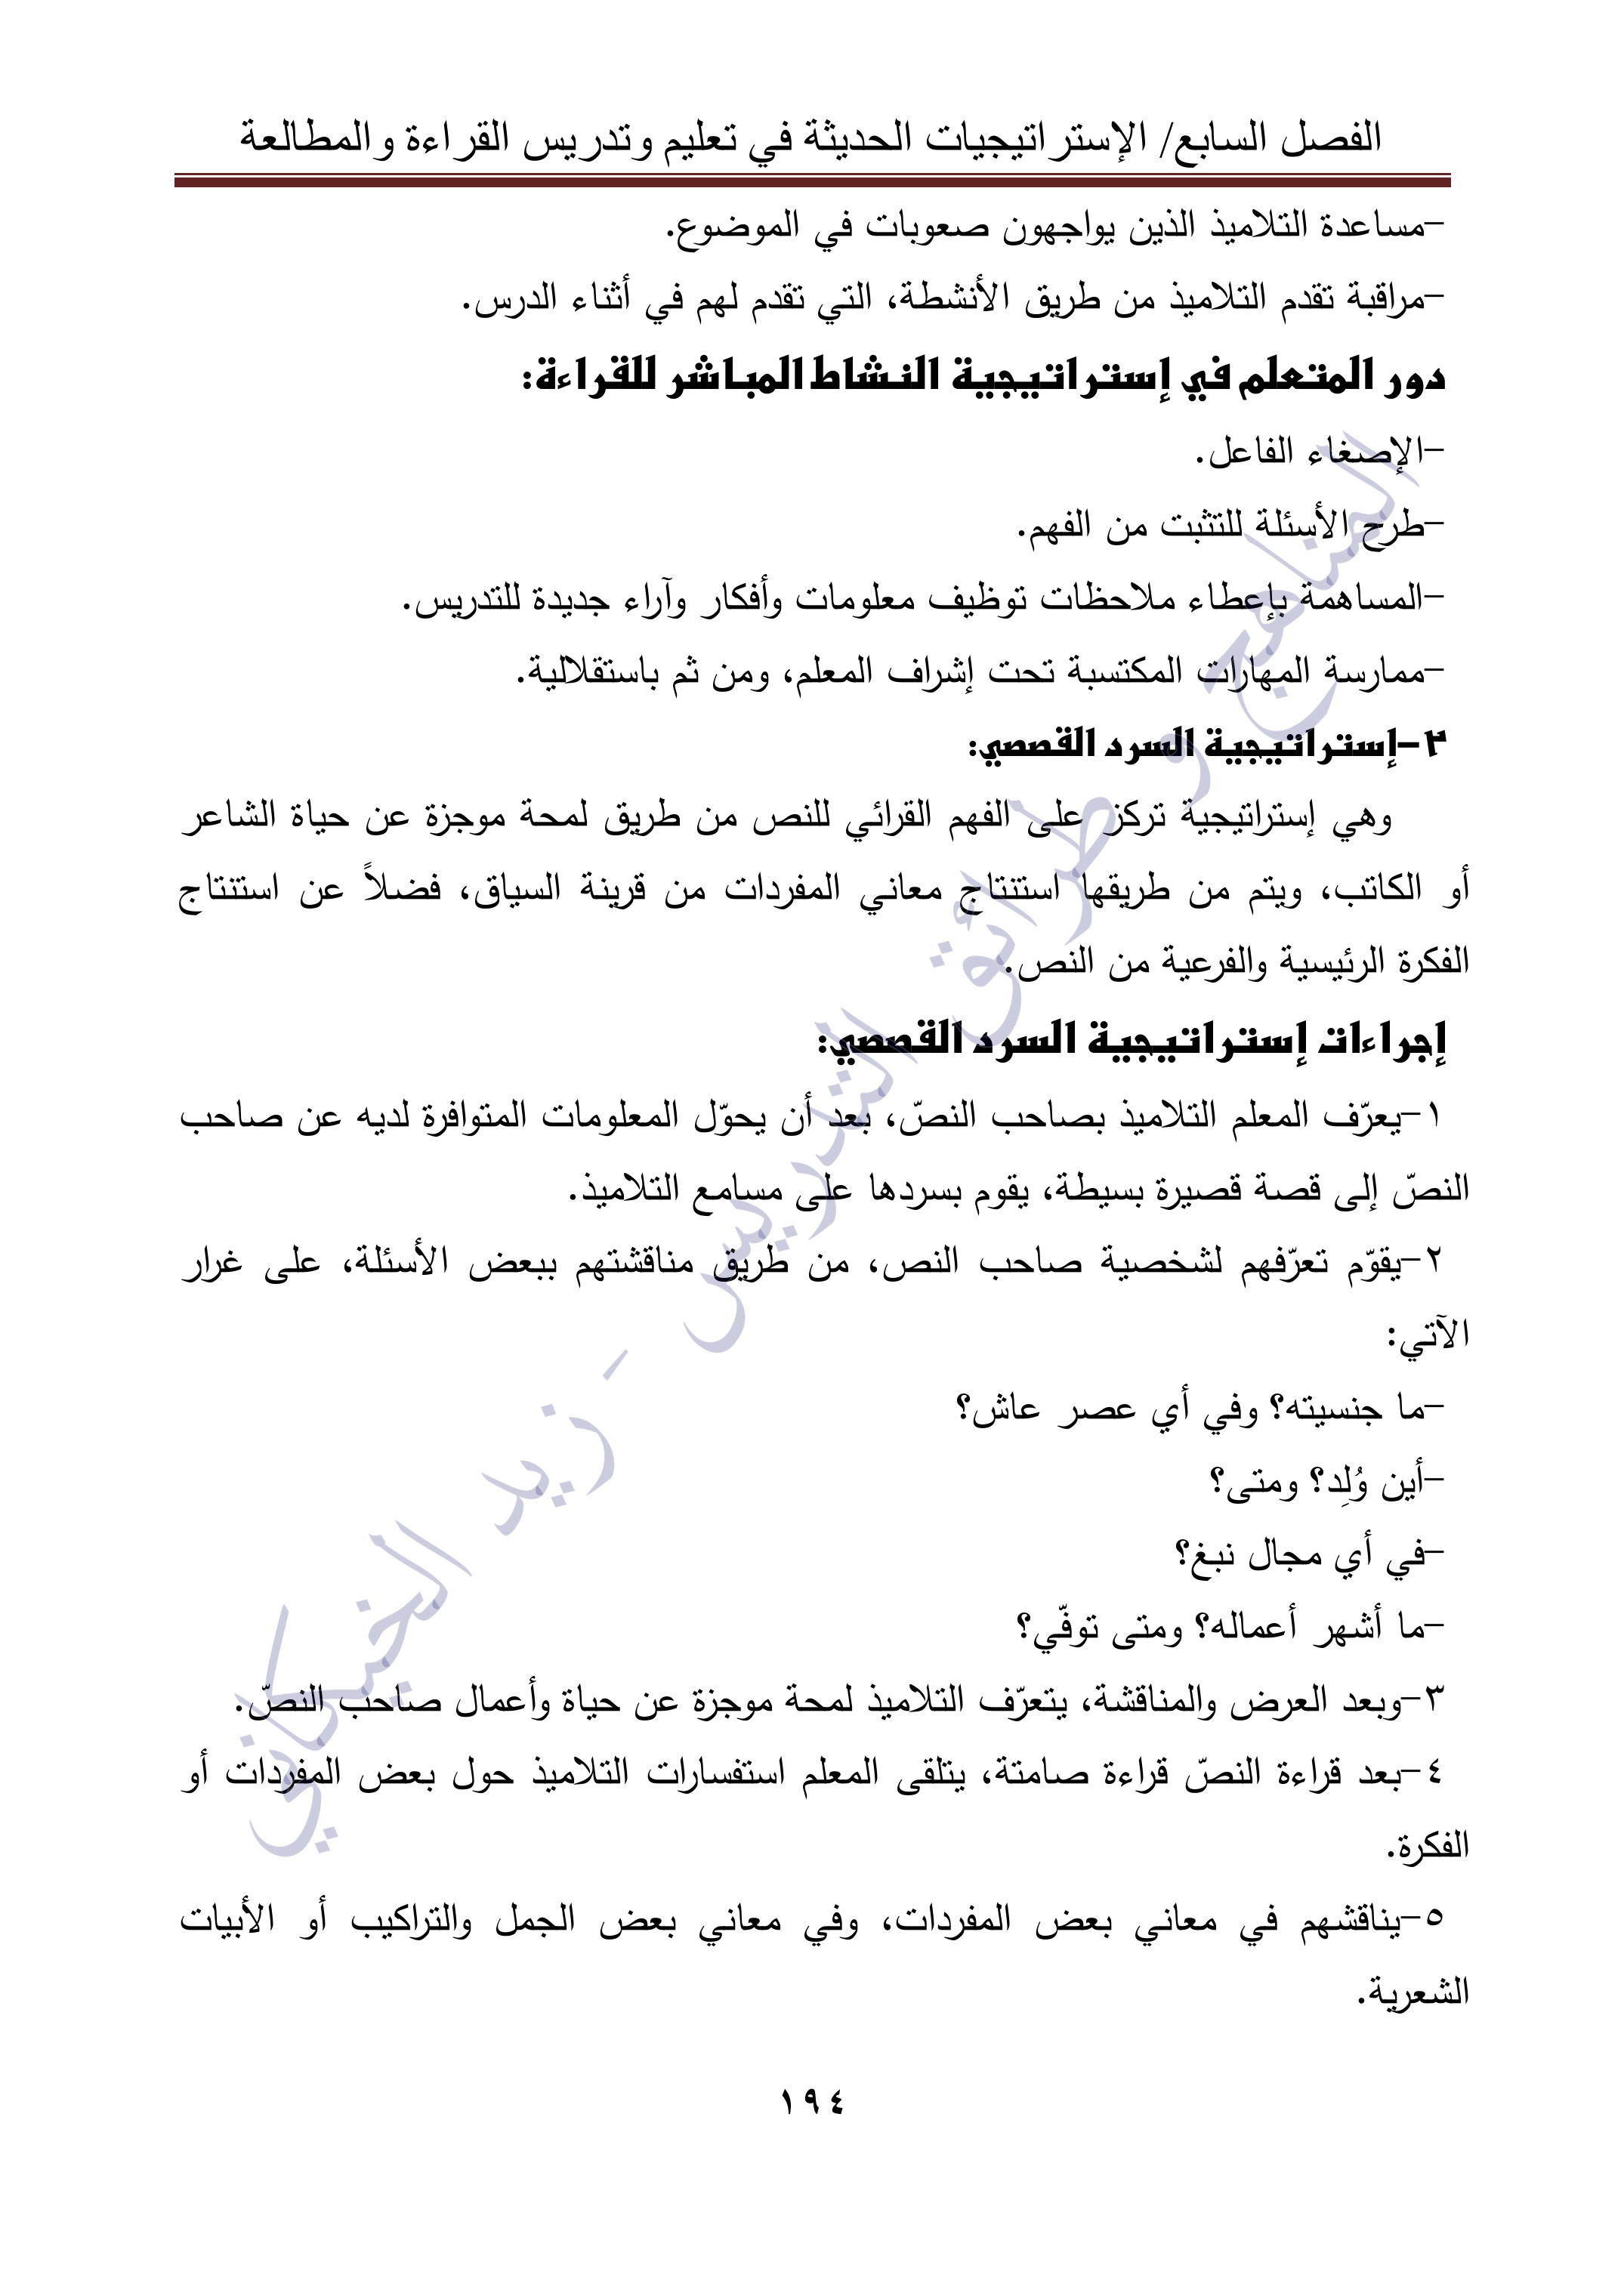 الفصل السابع/ الإستراتيجيات الحديثة في تعليم وتدريس القراءة والمطالعة
-مساعدة التلاميذ الذين يواجهون صعوبات في الموضوع.
-مراقبة تقدم التلاميذ من طريق الأنشطة، التي تقدم لهم في أثناء الدرس.
دور المتعلم في إستراتيجية النشاط المباشر للقراءة:
-الإصغاء الفاعل.
-طرح الأسئلة للتثبت من الفهم.
-المساهمة بإعطاء ملاحظات توظيف معلومات وأفكار وآراء جديدة للتدريس.
-ممارسة المهارات المكتسبة تحت إشراف المعلم، ومن ثم باستقلالية.
٢-إستراتيجية السرد القصصي:
وهي إستراتيجية تركز على الفهم القرائي للنص من طريق لمحة موجزة عن حياة الشاعر
أو الكاتب، ويتم من طريقها استنتاج معاني المفردات من قرينة السياق، فضلاً عن استنتاج
الفكرة الرئيسية والفرعية من النص.
إجراءات إستراتيجية السرد القصصي:
١-يعرّف المعلم التلاميذ بصاحب النصّ، بعد أن يحوّل المعلومات المتوافرة لديه عن صاحب
النصّ إلى قصة قصيرة بسيطة، يقوم بسردها على مسامع التلاميذ.
٢-يقوّم تعرّفهم لشخصية صاحب النص، من طريق مناقشتهم ببعض الأسئلة، على غرار
الآتي:
-ما جنسيته؟ وفي أي عصر عاش؟
-أين وُلِد؟ ومتى؟
-في أي مجال نبغ؟
-ما أشهر أعماله؟ ومتى توفّي؟
٣-وبعد العرض والمناقشة، يتعرّف التلاميذ لمحة موجزة عن حياة وأعمال صاحب النصّ.
٤-بعد قراءة النصّ قراءة صامتة، يتلقى المعلم استفسارات التلاميذ حول بعض المفردات أو
الفكرة.
٥-يناقشهم في معاني بعض المفردات، وفي معاني بعض الجمل والتراكيب أو الأبيات
الشعرية.
١٩٤
المناهج و طرائق التدريس - زيد الخيكاني